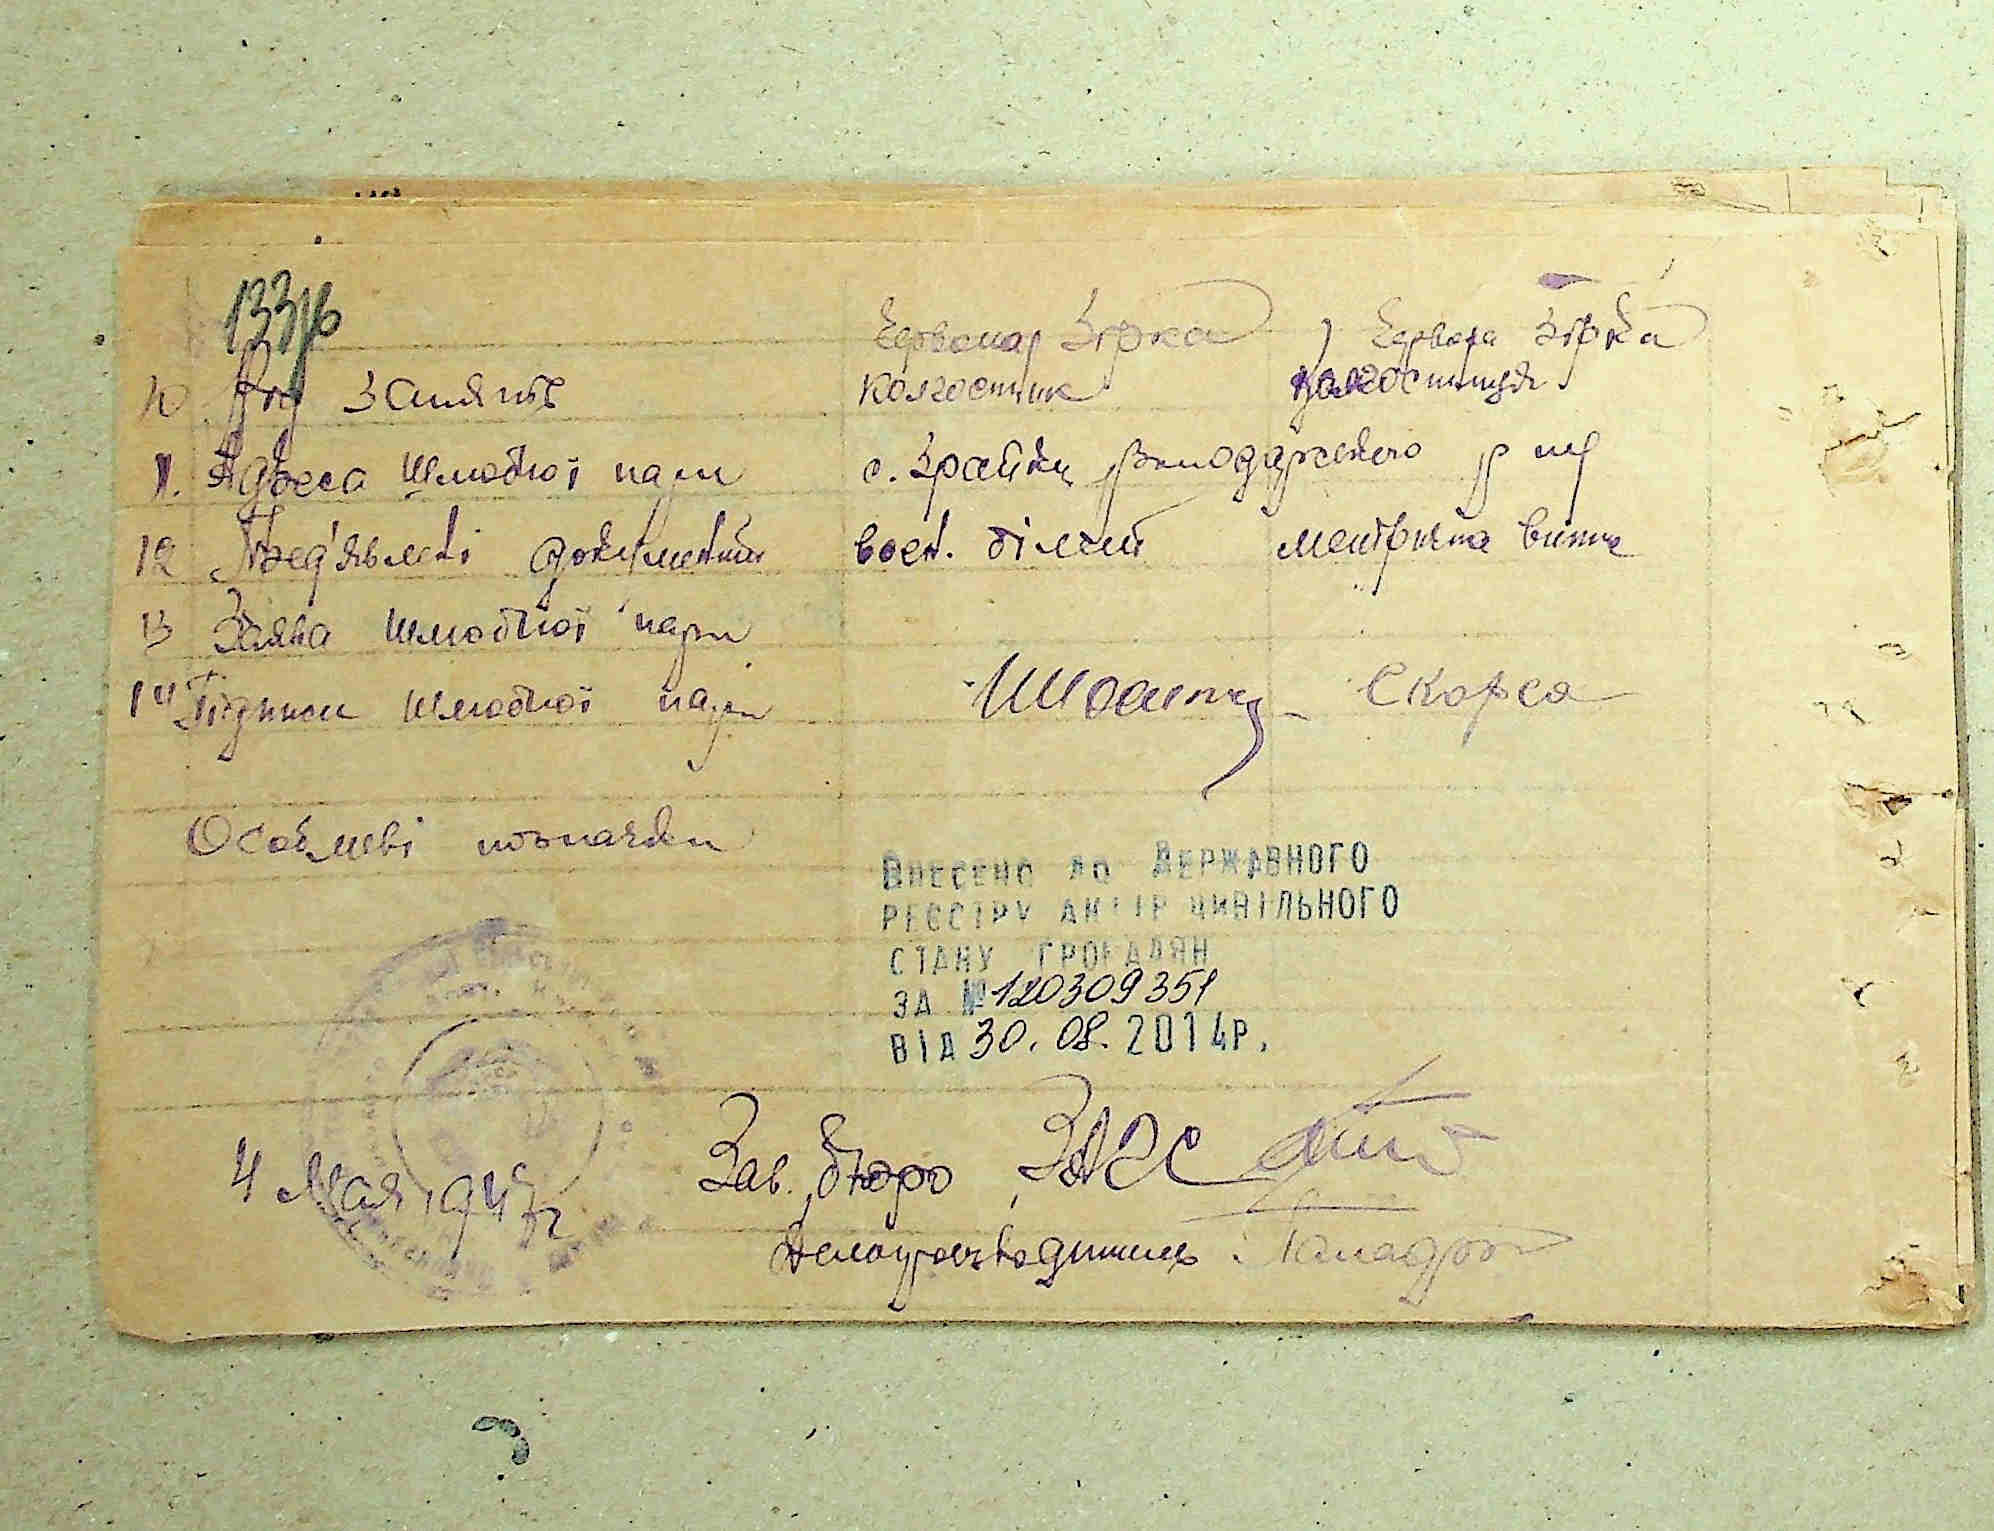 133
Червона Зірка Червона Зірка
10 Рід занять колгоспник колгоспниця
11. Адреса шлюбної пари с. Зрайки Володарського р-ну
12 Пред'явлені документи воєн. білет метрична випис
13 Заява шлюбної пари
14 Підписи шлюбної пари Скорса
Особливі позначки
Внесено до Державного
реєстру актів цивільного
стану громадян
за №120309351
від 30.08.2014р.
4 мая 1947 г Зав. бюро ЗАГС
Делопроизводитель